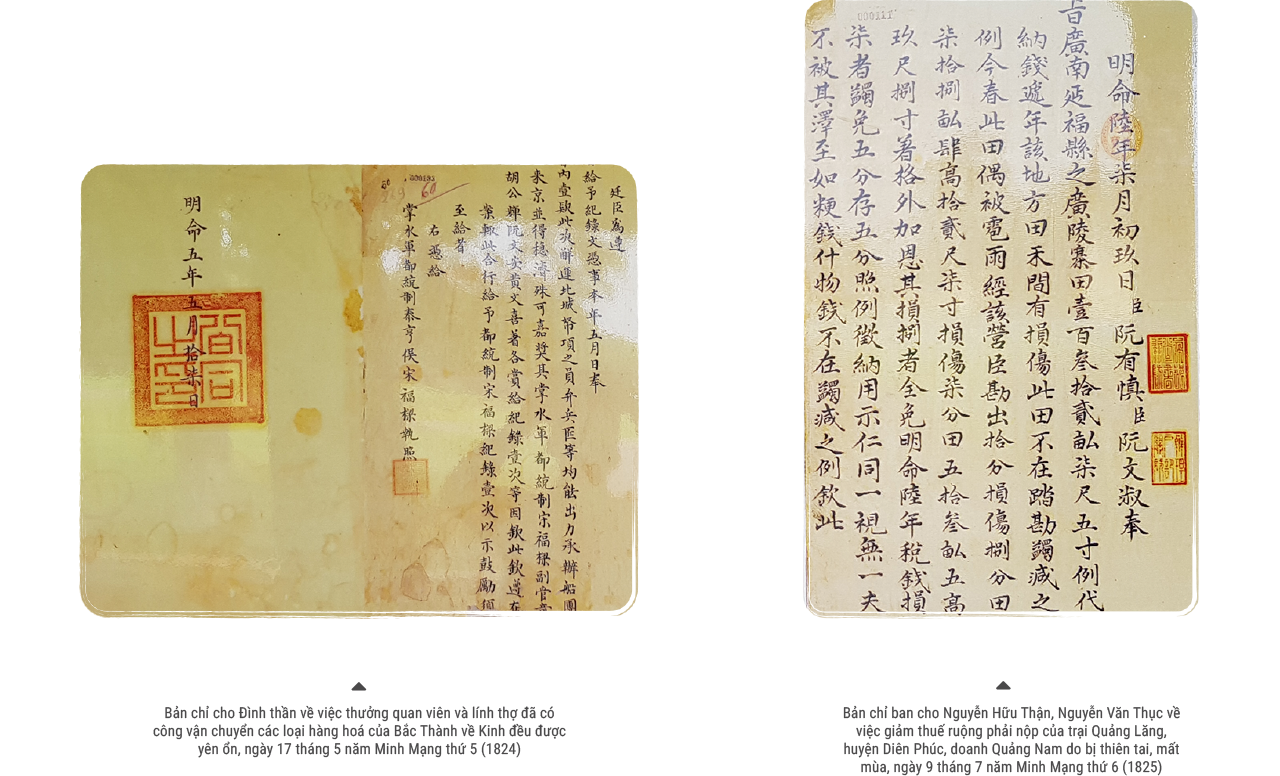 廷臣寫遵
給予紀錄文憑事本年五月日奉
內壹欵此次解運北城幣項之員弁兵匠等均能出力承辦船
來京並得穩濟殊可嘉奬其掌水軍都統制宋福樑副官
胡公輝阮文实黃文喜著各賞給紀錄壹次寧因欽此欽遵在
業輙此合行給予都統制宋福樑紀錄壹次以示鼓勵須
至給者
右憑給
掌水軍都統制泰亨侯宋福樑執照
60
明命五年五月拾柒日
Bản chỉ cho Đình thần về việc thưởng quan viên và lính thợ đã có
công vận chuyển các loại hàng hoá của Bắc Thành về Kinh đều được
yên ổn, ngày 17 tháng 5 năm Minh Mạng thứ 5 (1824)
000111
明命陸年柒月初玖日臣阮有慎臣阮文淑奉
旨廣南延福縣之廣陵寨田壹百叁拾貳畝柒尺五寸例代
納錢遞年該地方田禾間有損傷此田不在踏勘蠲減之
例今春此田偶被雹雨經該營臣勘出拾分損傷捌分田
柒拾捌畝肆高拾貳尺柒寸損傷柒分田五拾叁畝五高
玖尺捌寸著格外加恩其損捌者全免明命陸年稅錢損
柒者蠲免五分存五分照例徵納用示仁同一視無一夫
不被其澤至如粳錢什物錢不在蠲減之例欽此
Bản chỉ ban cho Nguyễn Hữu Thận, Nguyễn Văn Thục về
việc giảm thuế ruộng phải nộp của trại Quảng Lăng,
huyện Diên Phúc, doanh Quảng Nam do bị thiên tai, mất
mùa, ngày 9 tháng 7 năm Minh Mạng thứ 6 (1825)